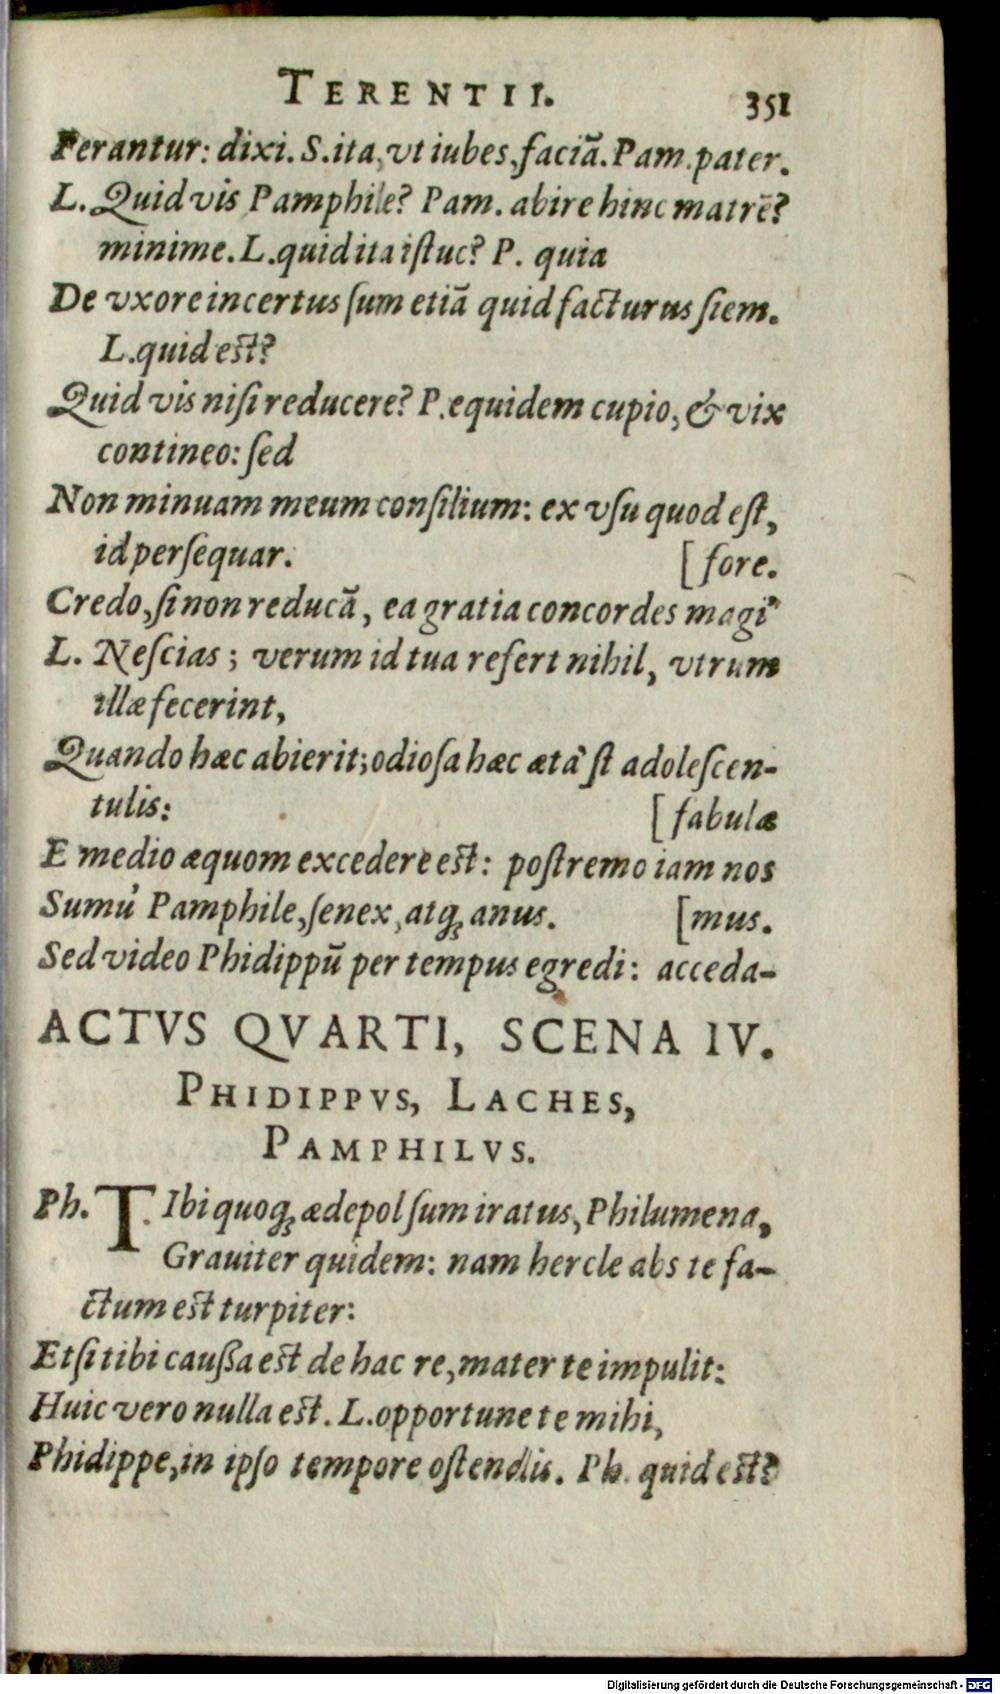 TERENTII. 351
Ferantur: dixi. S. ita, vt iubes, faciā. Pam. pater.
L. Quid vis Pamphile? Pam. abire hinc matrē?
minime. L. quid ita iſtuc? P. quia
De vxore incertus ſum etiā quid facturus ſiem.
L. quid eſt?
Quid vis niſi reducere? P. equidem cupio, & vix
contineo: ſed
Non minuam meum conſilium: ex vſu quod eſt,
id perſequar. [fore.
Credo, ſi non reducā, ea gratia concordes magi'
L. Neſcias; verum id tua refert nihil, vtrum
illæ fecerint,
Quando hæc abierit; odioſa hæc æta' ſt adoleſcen-
tulis: [fabulæ
E medio æquom excedere eſt: poſtremo iam nos
Sumu' Pamphile, ſenex, atq; anus. [mus.
Sed video Phidippū per tempus egredi: acceda-
ACTVS QVARTI, SCENA IV.
PHIDIPPVS, LACHES,
PAMPHILVS.
Ph. TIbi quoq; ædepol ſum iratus, Philumena,
Grauiter quidem: nam hercle abs te fa-
ctum eſt turpiter:
Etſi tibi cauſſa eſt de hac re, mater te impulit:
Huic vero nulla eſt. L. opportune te mihi,
Phidippe, in ipſo tempore oſtendis. Ph. quid eſt?
Digitalisierung gefördert durch die Deutsche Forschungsgemeinschaft - DFG